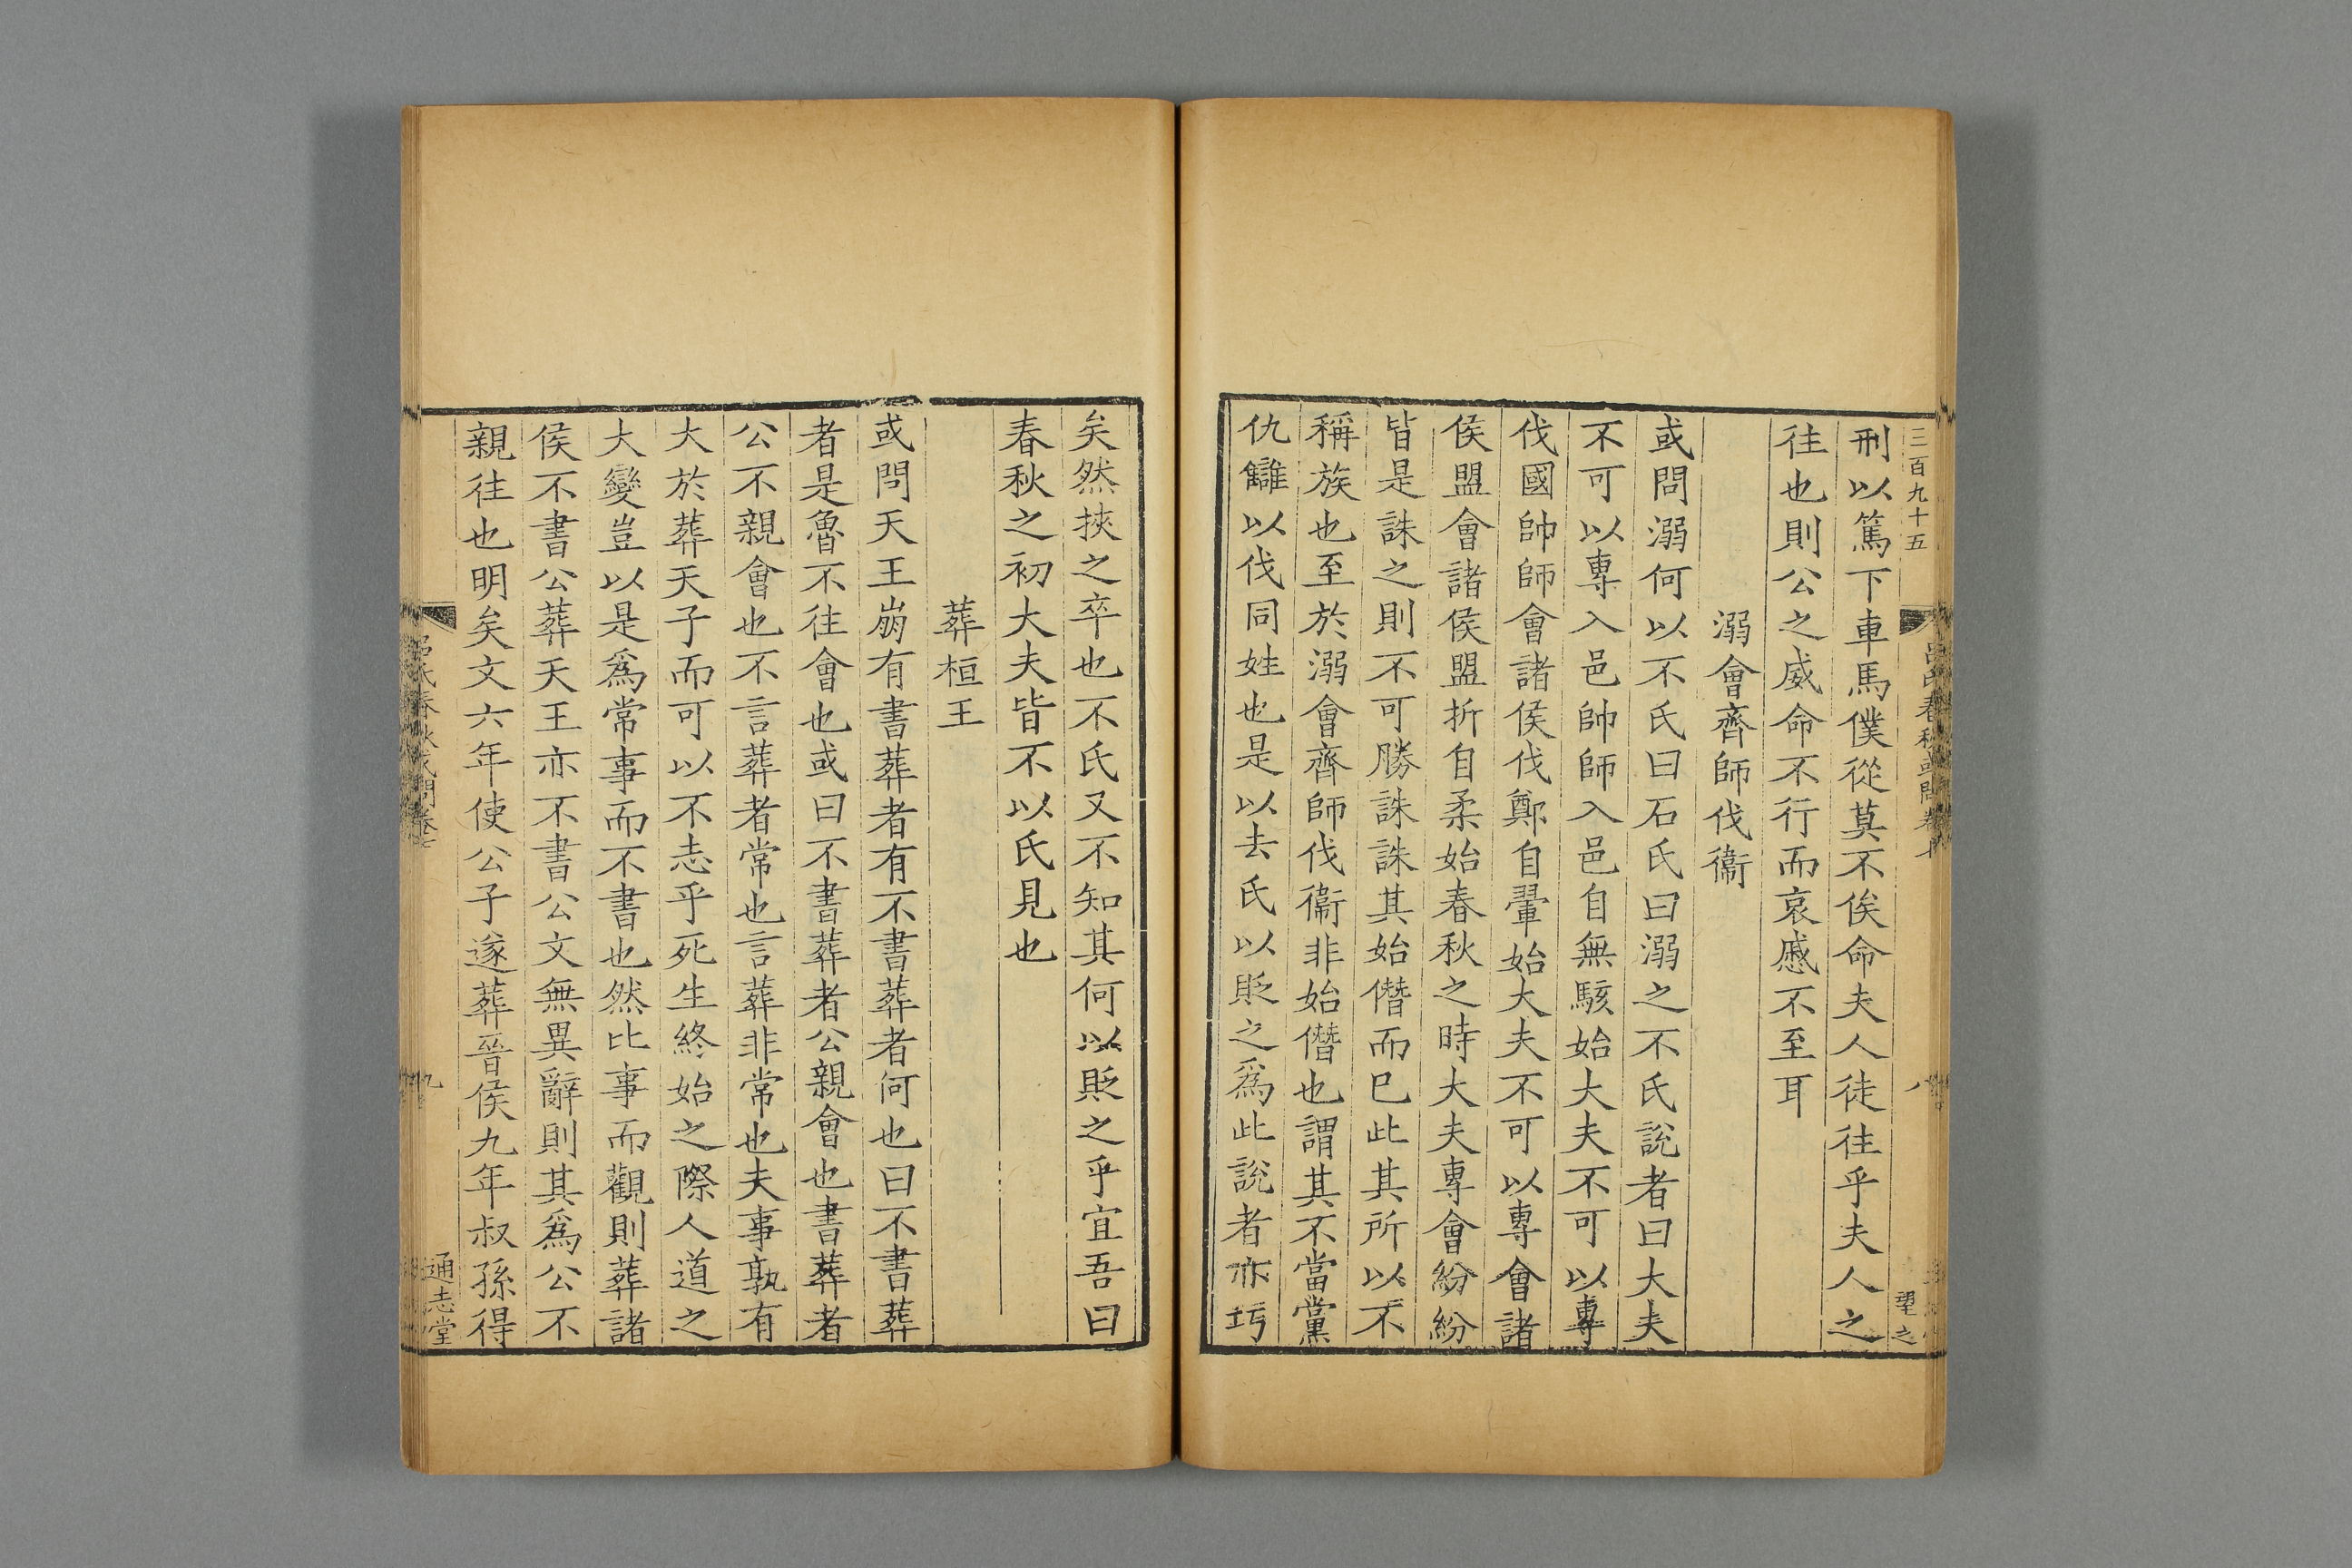 三百九十五
刑以篤下車馬僕從莫不俟命夫人徒往乎夫人之
往也則公之威命不行而哀慼不至耳
溺會齊師伐衞
或問溺何以不氏曰石氏曰溺之不氏說者曰大夫
不可以專入邑帥師入邑自無駭始大夫不可以專
伐國帥師會諸侯伐鄭自翬始大夫不可以專會諸
侯盟會諸侯盟折自柔始春秋之時大夫專會紛紛
皆是誅之則不可勝誅誅其始僭而巳此其所以不
稱族也至於溺會齊師伐衞非始僭也謂其不當黨
仇讎以伐同姓也是以去氏以貶之爲此說者亦巧
矣然挾之卒也不氏又不知其何以貶之乎宜吾曰
春秋之初大夫皆不以氏見也
葬桓王
或問天王崩有書葬者有不書葬者何也曰不書葬
者是魯不往會也或曰不書葬者公親會也書葬者
公不親會也不言葬者常也言葬非常也夫事孰有
大於葬天子而可以不志乎死生終始之際人道之
大變豈以是爲常事而不書也然比事而觀則葬諸
侯不書公葬天王亦不書公文無異辭則其爲公不
親往也明矣文六年使公子遂葬晉侯九年叔孫得
呂氏春秋或問卷七
九
通志堂